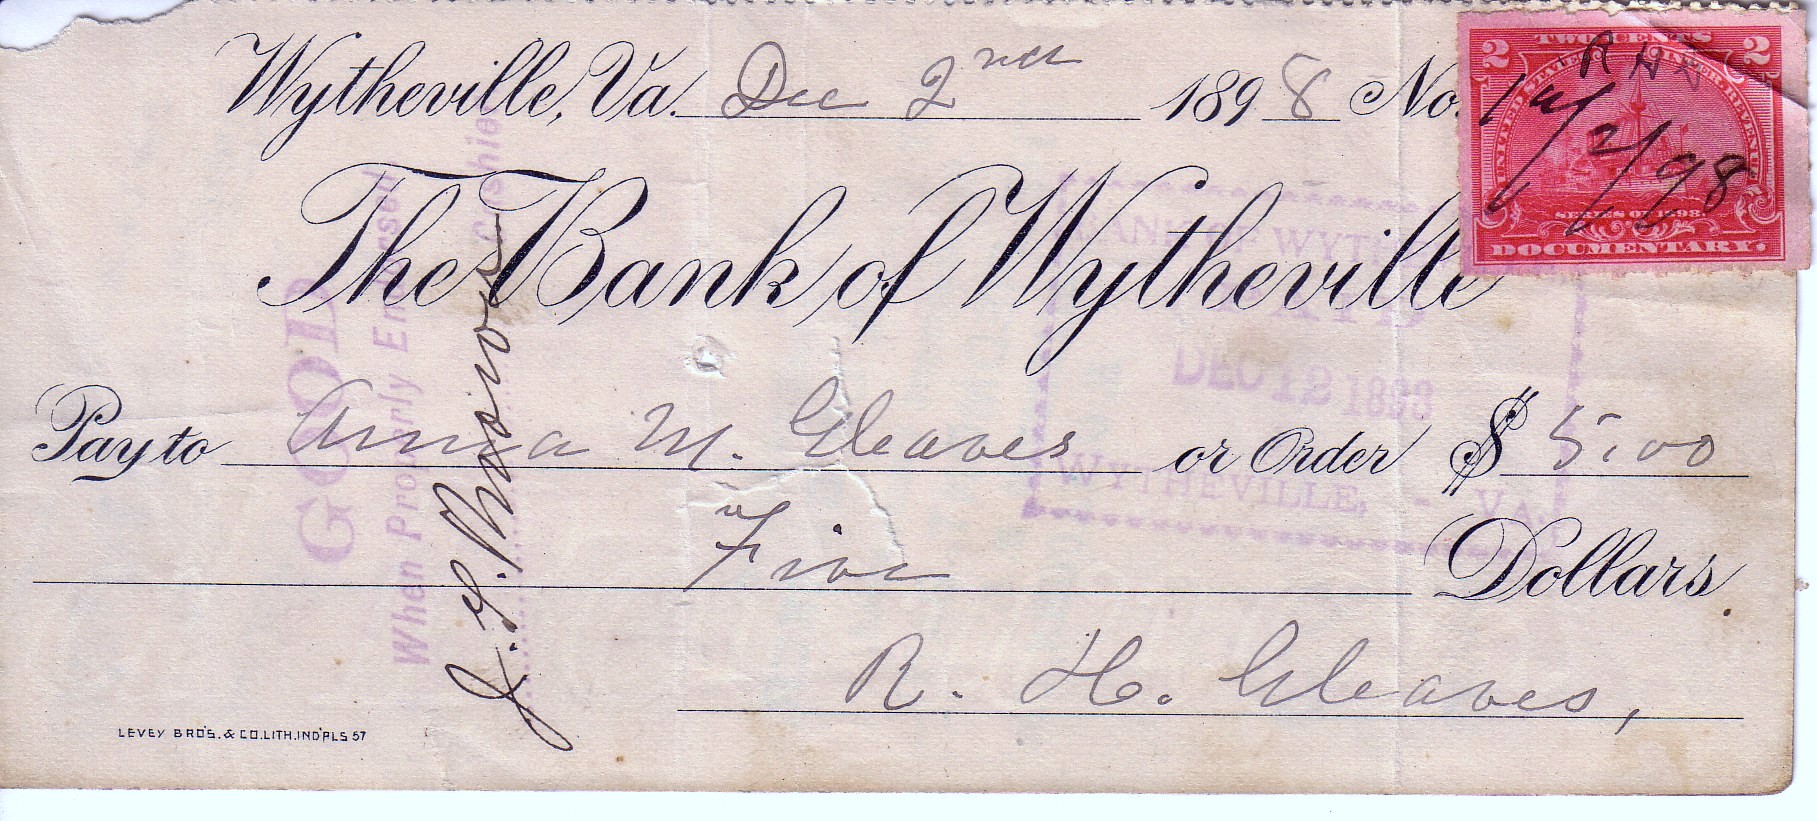 Wytheville, Va. Dec 2nd 1898 No.
The Bank of Wytheville
Pay to Anna M. Gleaves or Order $ 5.00
Five Dollars
R. H. Gleaves,
LEVEY BRO'S. & CO. LITH. IND'PLS 57
2 TWO CENTS 2
UNITED STATES INTER. REVENUE
SERIES OF 1898
DOCUMENTARY.
12/2/98
GOOD
When Properly Endorsed
Cashier
BANK OF WYTHEVILLE
PAID
DEC 12 1898
WYTHEVILLE, - VA.